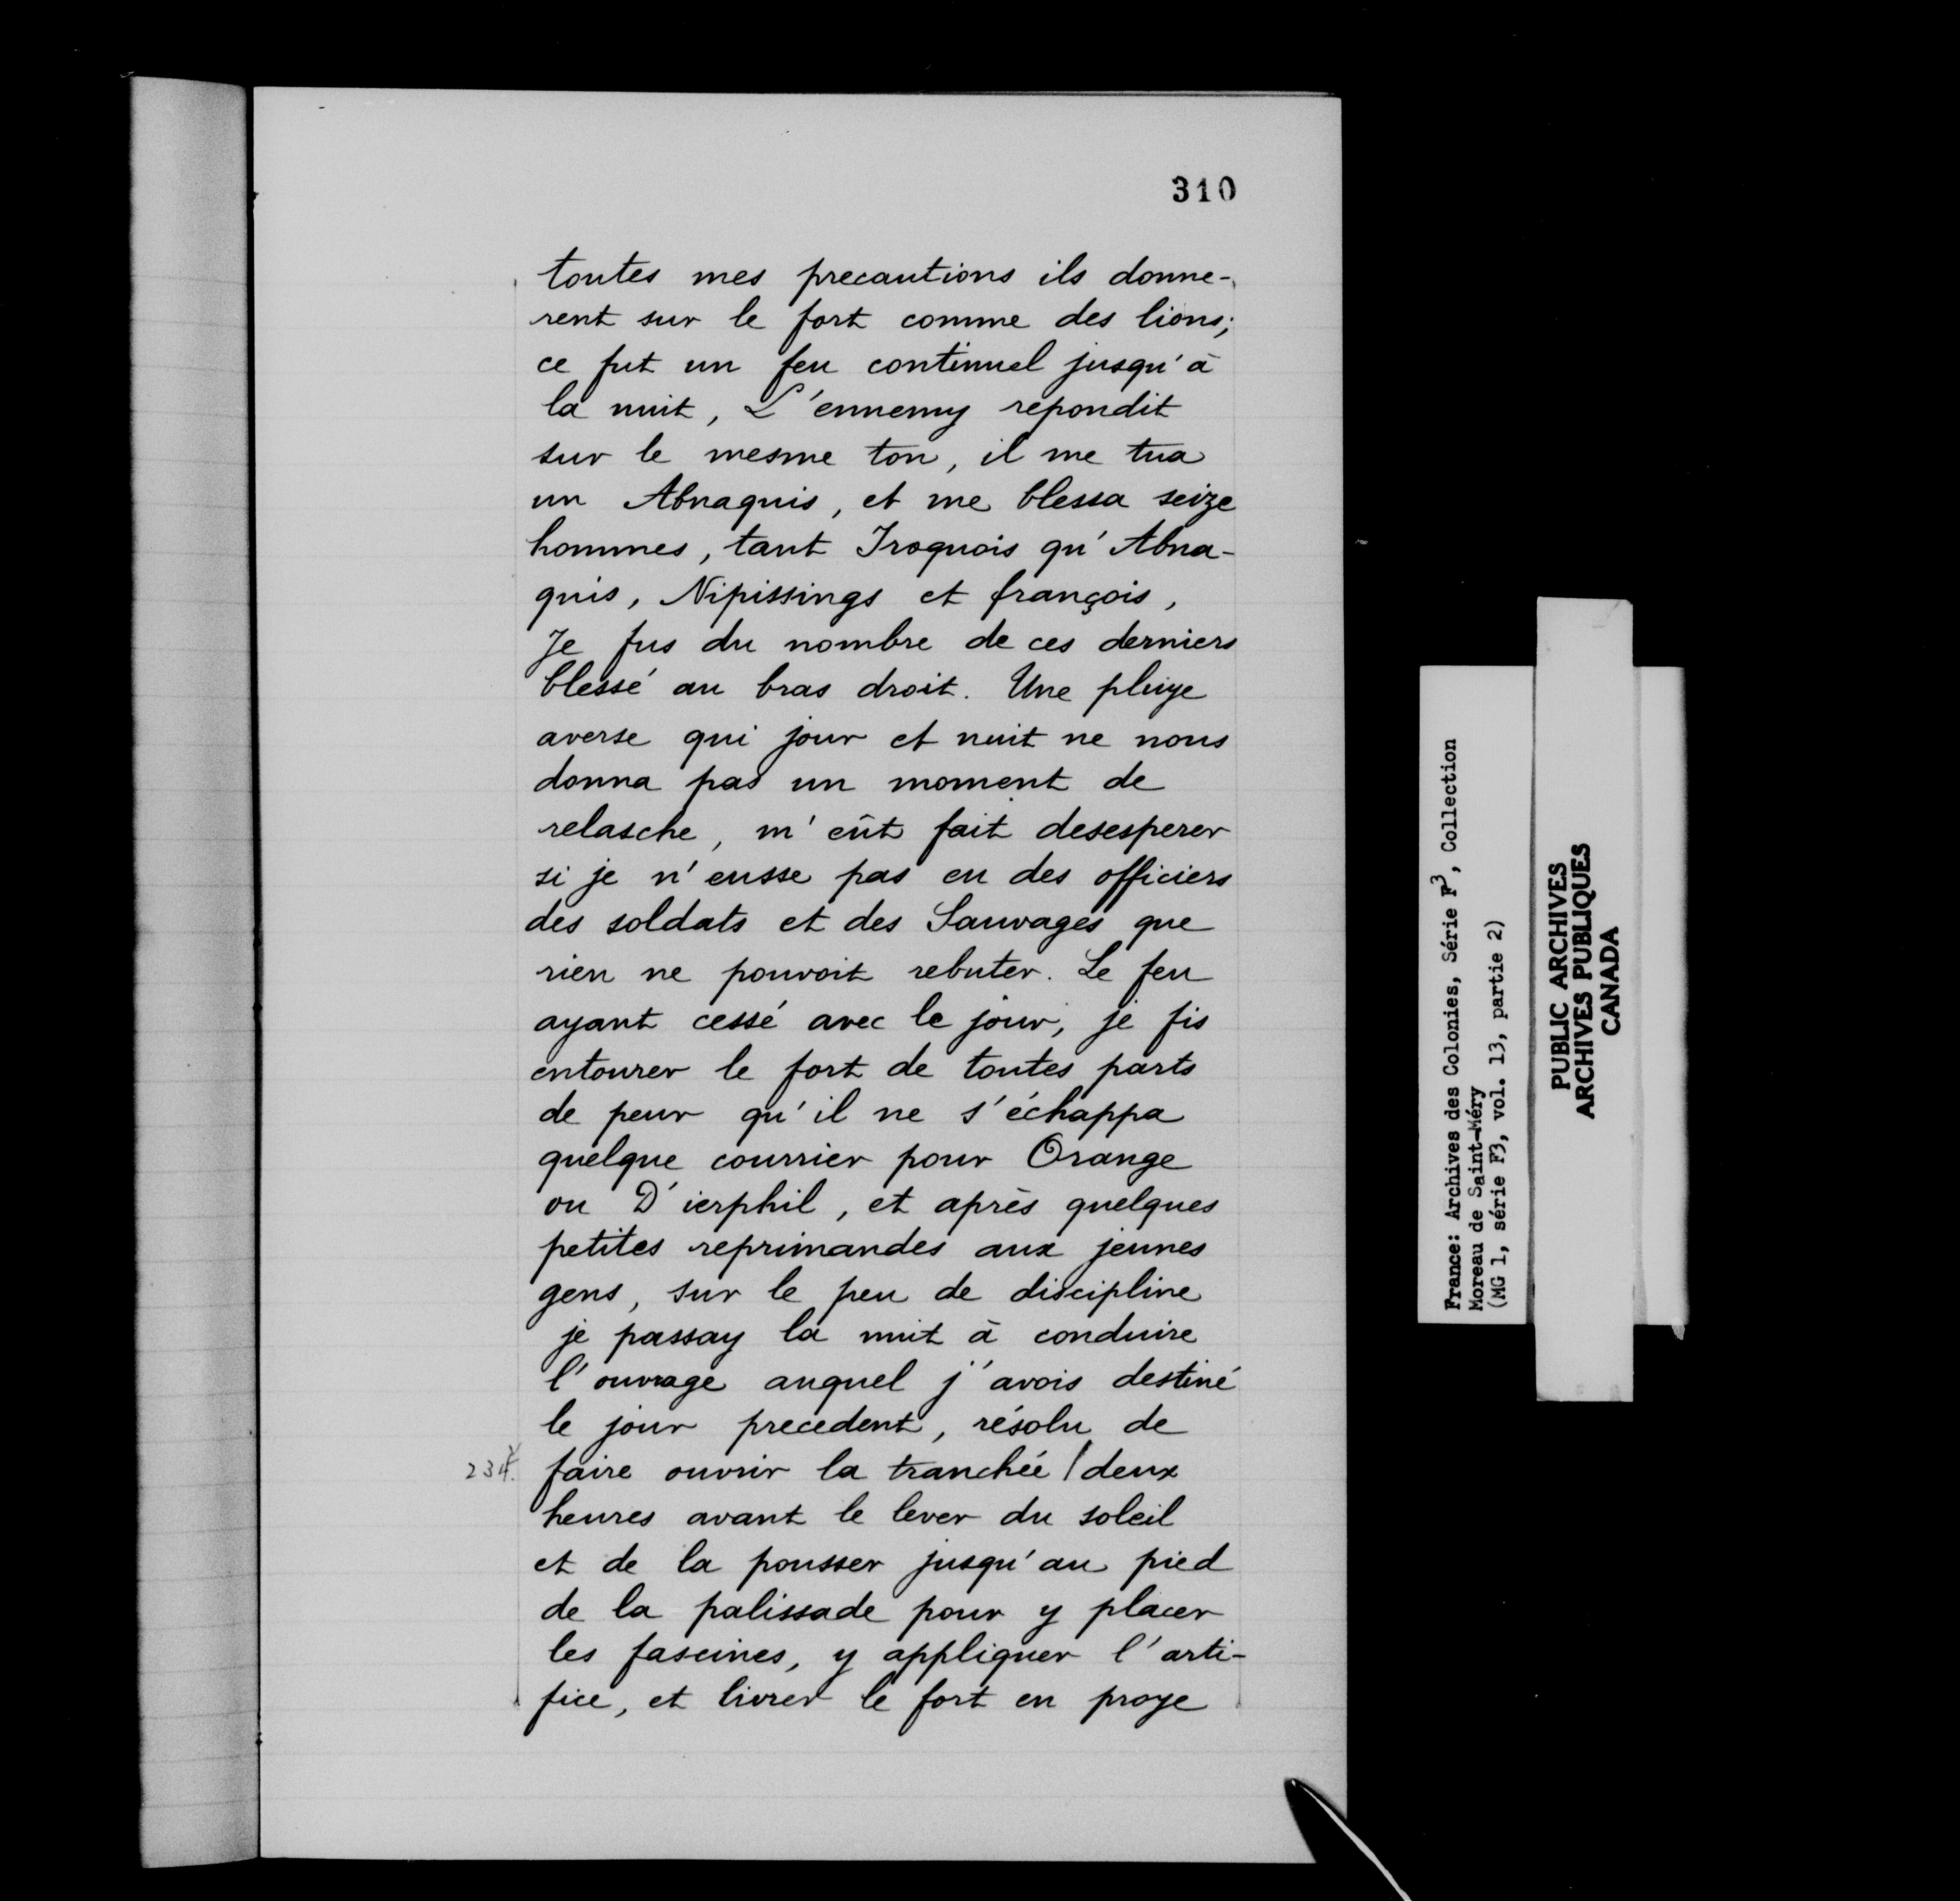 310
toutes mes precautions ils donne-
rent sur le fort comme des lions;
ce fut un feu continuel jusqu'à
la nuit, L'ennemy repondit
sur le mesme ton, il me tua
un Abnaquis, et me blessa seize
hommes, tant Iroquois qu'Abna-
quis, Nipissings et françois,
Je fus du nombre de ces derniers
blessé au bras droit. Une pluye
averse qui jour et nuit ne nous
donna pas un moment de
relasche, m'eût fait desesperer
si je n'eusse pas eu des officiers
des soldats et des Sauvages que
rien ne pouvoit rebuter. Le feu
ayant cessé avec le jour, je fis
entourer le fort de toutes parts
de peur qu'il ne s'échappa
quelque courrier pour Orange
ou D'ierphil, et après quelques
petites reprimandes aux jeunes
gens, sur le peu de discipline
je passay la nuit à conduire
l'ouvrage auquel j'avois destiné
le jour precedent, résolu de
234. faire ouvrir la tranchée / deux
heures avant le lever du soleil
et de la pousser jusqu'au pied
de la palissade pour y placer
les fascines, y appliquer l'arti-
fice, et livrer le fort en proye
France: Archives des Colonies, Série F3, Collection
Moreau de Saint-Méry
(MG 1, série F3, vol. 13, partie 2)
PUBLIC ARCHIVES
ARCHIVES PUBLIQUES
CANADA